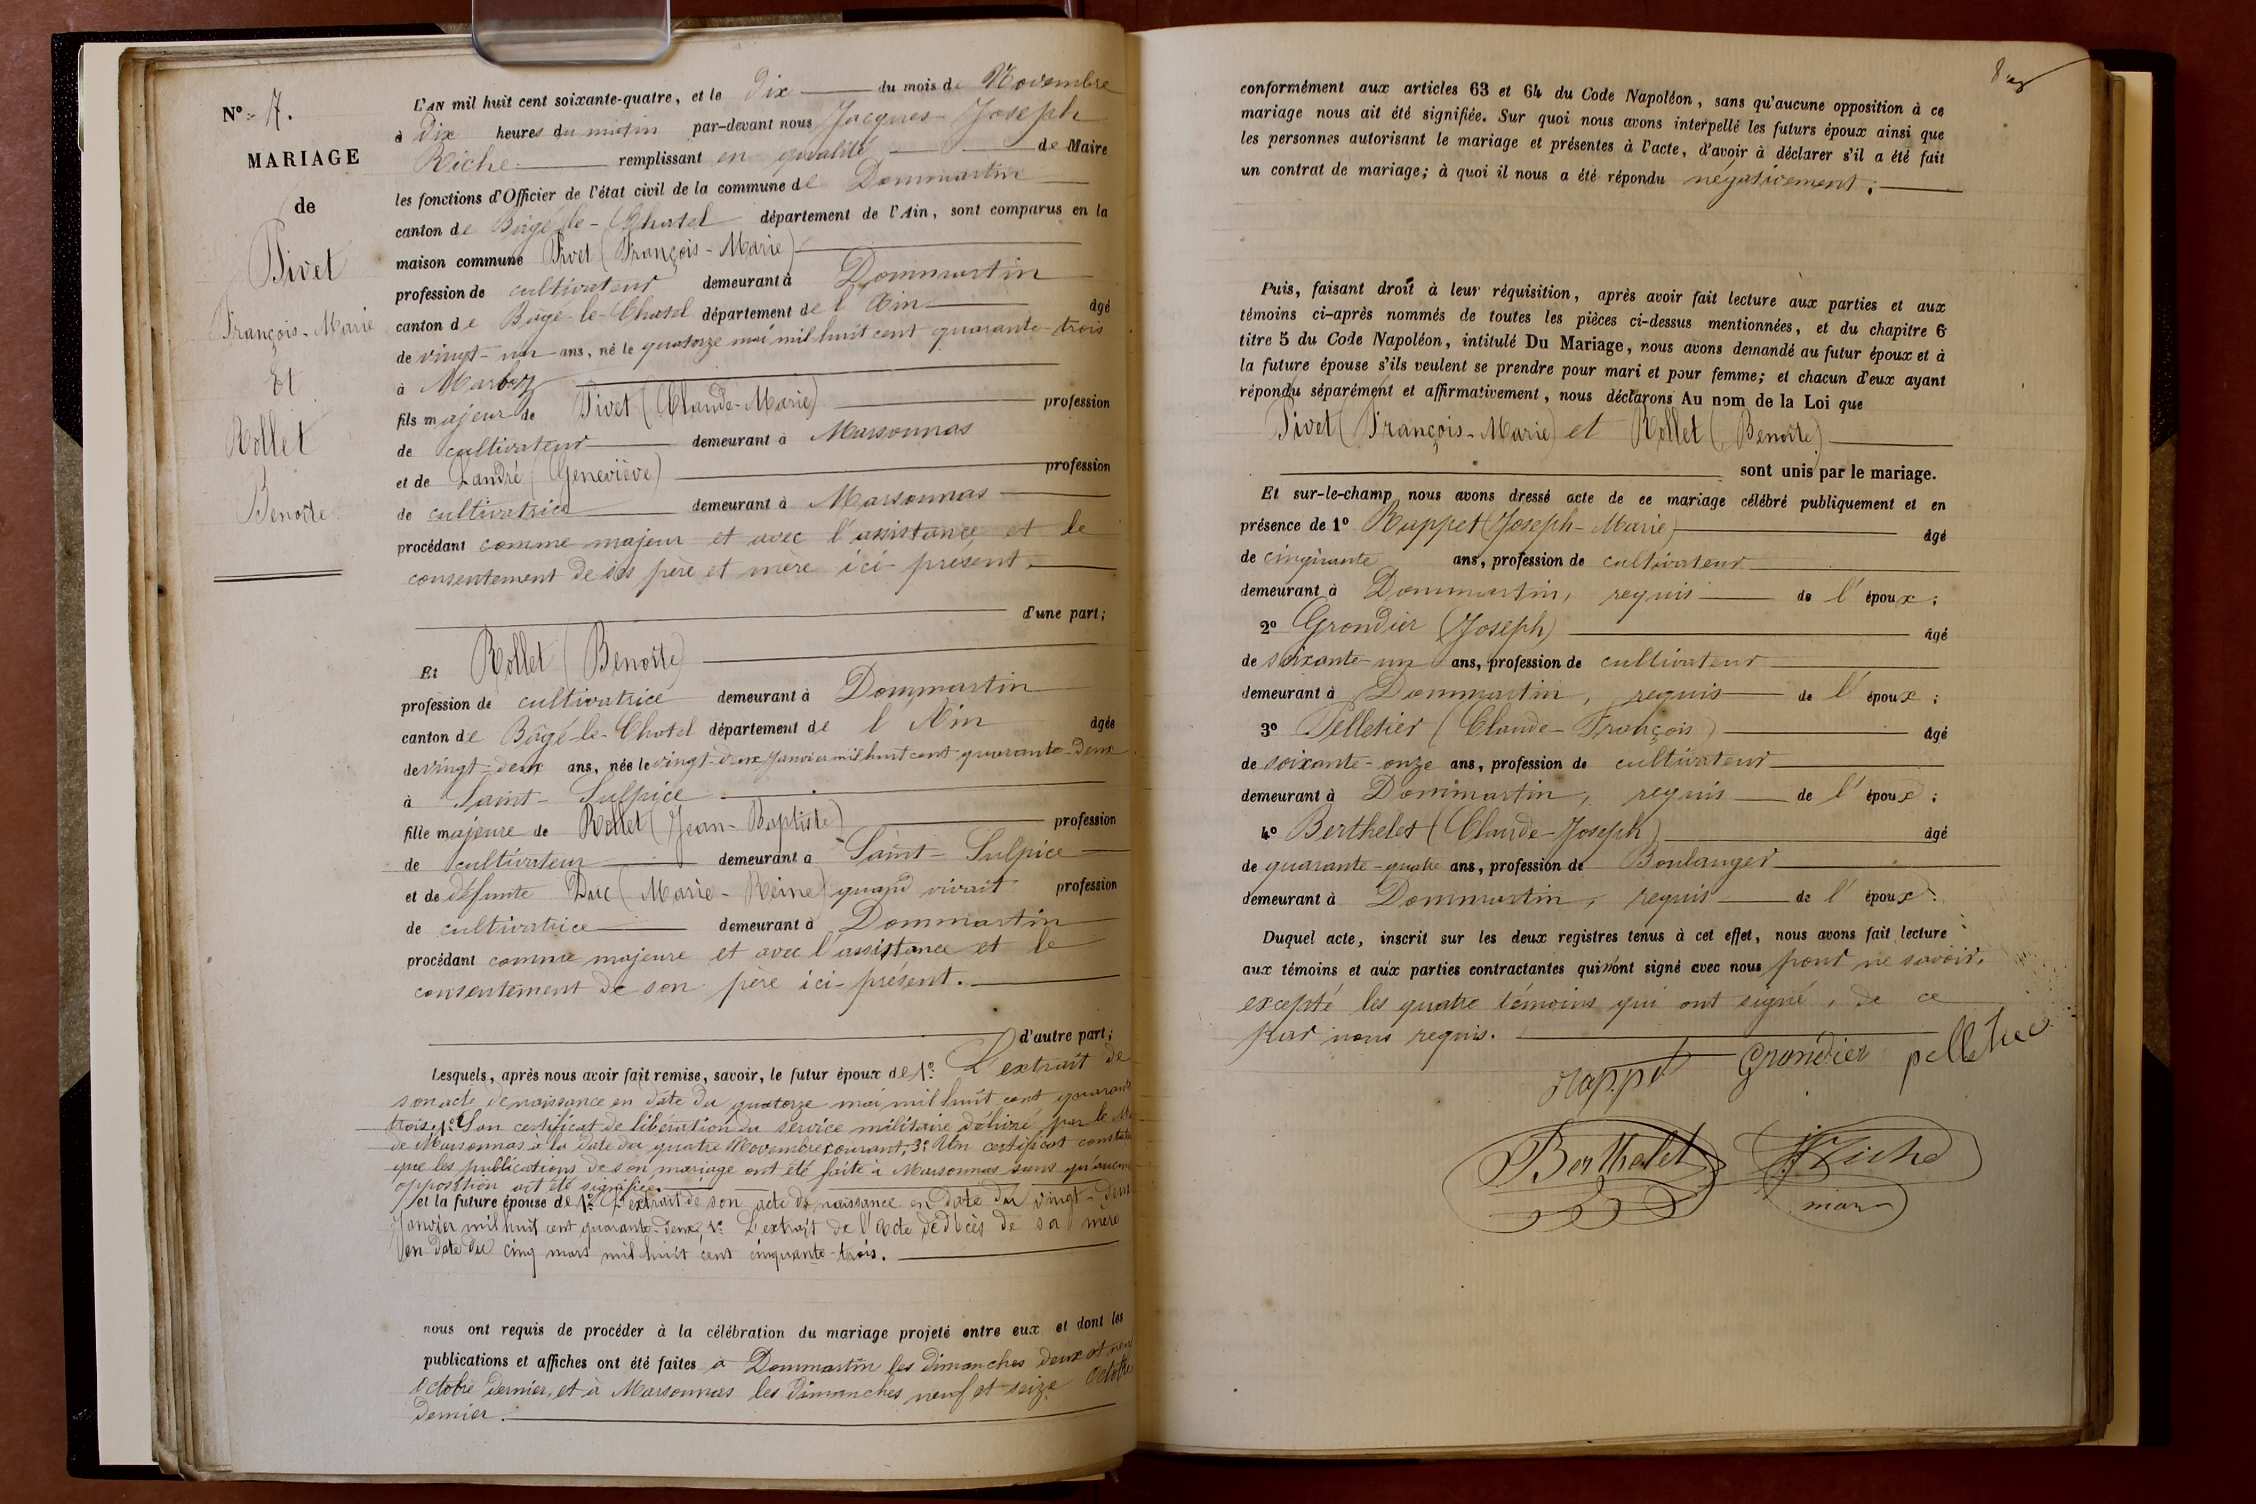 N° 7.
MARIAGE
de
Pivet
François-Marie
Et
Rollet
Benoite
L'AN mil huit cent soixante-quatre, et le dix du mois de Novembre
à dix heures du matin par-devant nous Jacques-Joseph
Riche remplissant en qualité de Maire
les fonctions d'Officier de l'état civil de la commune de Dommartin
canton de Bâgé-le-Chatel département de l'Ain, sont comparus en la
maison commune Pivet (François-Marie)
profession de cultivateur demeurant à Dommartin
canton de Bâgé-le-Chatel département de l'Ain âgé
de vingt-un ans, né le quatorze mai mil huit cent quarante-trois
à Marboz
fils majeur de Pivet (Claude-Marie) profession
de cultivateur demeurant à Marsonnas
et de Landré (Geneviève) profession
de cultivatrice demeurant à Marsonnas
procédant comme majeur et avec l'assistance et le
consentement de ses père et mère ici présent.
d'une part;
Et Rollet (Benoite)
profession de cultivatrice demeurant à Dommartin
canton de Bâgé-le-Chatel département de l'Ain âgée
de vingt-deux ans, née le vingt-deux Janvier mil huit cent quarante-deux
à Saint-Sulpice
fille majeure de Rollet (Jean-Baptiste) profession
de cultivateur demeurant à Saint-Sulpice
et de défunte Duc (Marie-Reine) quand vivait profession
de cultivatrice demeurant à Dommartin
procédant comme majeure et avec l'assistance et le
consentement de son père ici-présent.
d'autre part;
Lesquels, après nous avoir fait remise, savoir, le futur époux de 1° L'extrait de
son acte de naissance en date du quatorze mai mil huit cent quarante
trois, Son certificat de libération du service militaire délivré par le
de Marsonnas à la date du quatre Novembre courant, 3° Un certificat
que les publications de son mariage ont été faite à Marsonnas sans qu'aucune
opposition ait été signifiée.
et la future épouse de 1° L'extrait de son acte de naissance en date du vingt-deux
Janvier mil huit cent quarante-deux, L'extrait de l'acte de décès de sa mère
en date du cinq mars mil huit cent cinquante-trois.
nous ont requis de procéder à la célébration du mariage projeté entre eux et dont les
publications et affiches ont été faites à Dommartin les dimanches deux et neuf
octobre dernier, et à Marsonnas les dimanches neuf et seize octobre
dernier.
conformément aux articles 63 et 64 du Code Napoléon, sans qu'aucune opposition à ce
mariage nous ait été signifiée. Sur quoi nous avons interpellé les futurs époux ainsi que
les personnes autorisant le mariage et présentes à l'acte, d'avoir à déclarer s'il a été fait
un contrat de mariage; à quoi il nous a été répondu négativement;
Puis, faisant droit à leur réquisition, après avoir fait lecture aux parties et aux
témoins ci-après nommés de toutes les pièces ci-dessus mentionnées, et du chapitre 6
titre 5 du Code Napoléon, intitulé Du Mariage, nous avons demandé au futur époux et à
la future épouse s'ils veulent se prendre pour mari et pour femme; et chacun d'eux ayant
répondu séparément et affirmativement, nous déclarons Au nom de la Loi que
Pivet (François-Marie) et Rollet (Benoite)
sont unis par le mariage.
Et sur-le-champ nous avons dressé acte de ce mariage célébré publiquement et en
présence de 1° Rappet (Joseph-Marie) âgé
de cinquante ans, profession de cultivateur
demeurant à Dommartin, requis de l'époux;
2° Grondier (Joseph) âgé
de soixante-un ans, profession de cultivateur
demeurant à Dommartin, requis de l'époux;
3° Pelletier (Claude-François) âgé
de soixante-onze ans, profession de cultivateur
demeurant à Dommartin, requis de l'époux;
4° Berthelet (Claude-Joseph) âgé
de quarante-quatre ans, profession de Boulanger
demeurant à Dommartin, requis de l'époux.
Duquel acte, inscrit sur les deux registres tenus à cet effet, nous avons fait lecture
aux témoins et aux parties contractantes qui n'ont signé avec nous pour ne savoir,
excepté les quatre témoins qui ont signé, de ce
par nous requis.
Rappet Grondier pelletier
Berthelet JJ Riche
maire